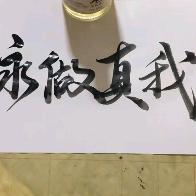 永做真我